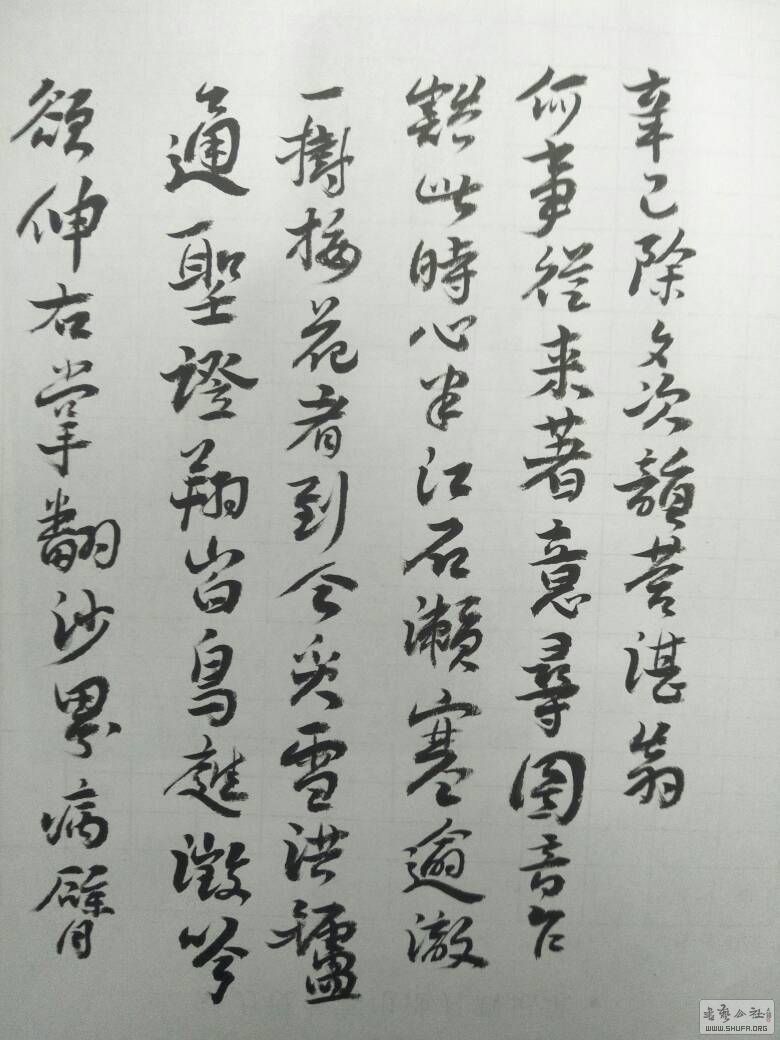 辛巳除夕次韻荅湛翁
何事從來著意尋圓音乍
豁此時心半江石瀨寒逾激
一樹梅花看到今奌雪洪鑪
通聖證翔鳥吟
欲伸右掌翻沙界病臂
書藝公社
WWW.SHUFA.ORG